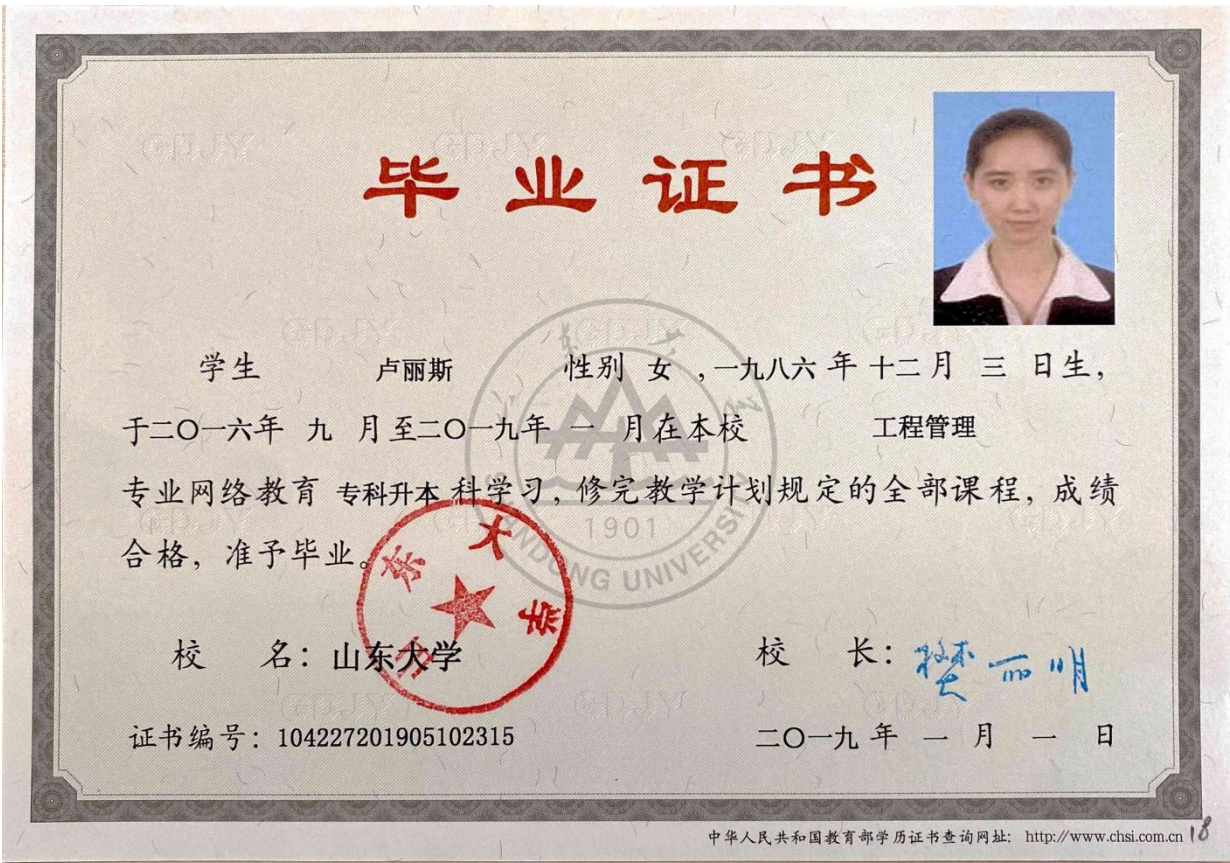 毕业证书
学生 卢丽斯 性别 女 ,一九八六 年 十二 月 三 日生，
于二〇一六年 九 月至二〇一九年 一 月在本校 工程管理
专业网络教育 专科升本 科学习，修完教学计划规定的全部课程，成绩
合格，准予毕业。
1901
SHANDONG UNIVERSITY
山东大学
校 名：山东大学 校 长：樊丽明
证书编号：104227201905102315 二〇一九 年 一 月 一 日
中华人民共和国教育部学历证书查询网址： http://www.chsi.com.cn 18